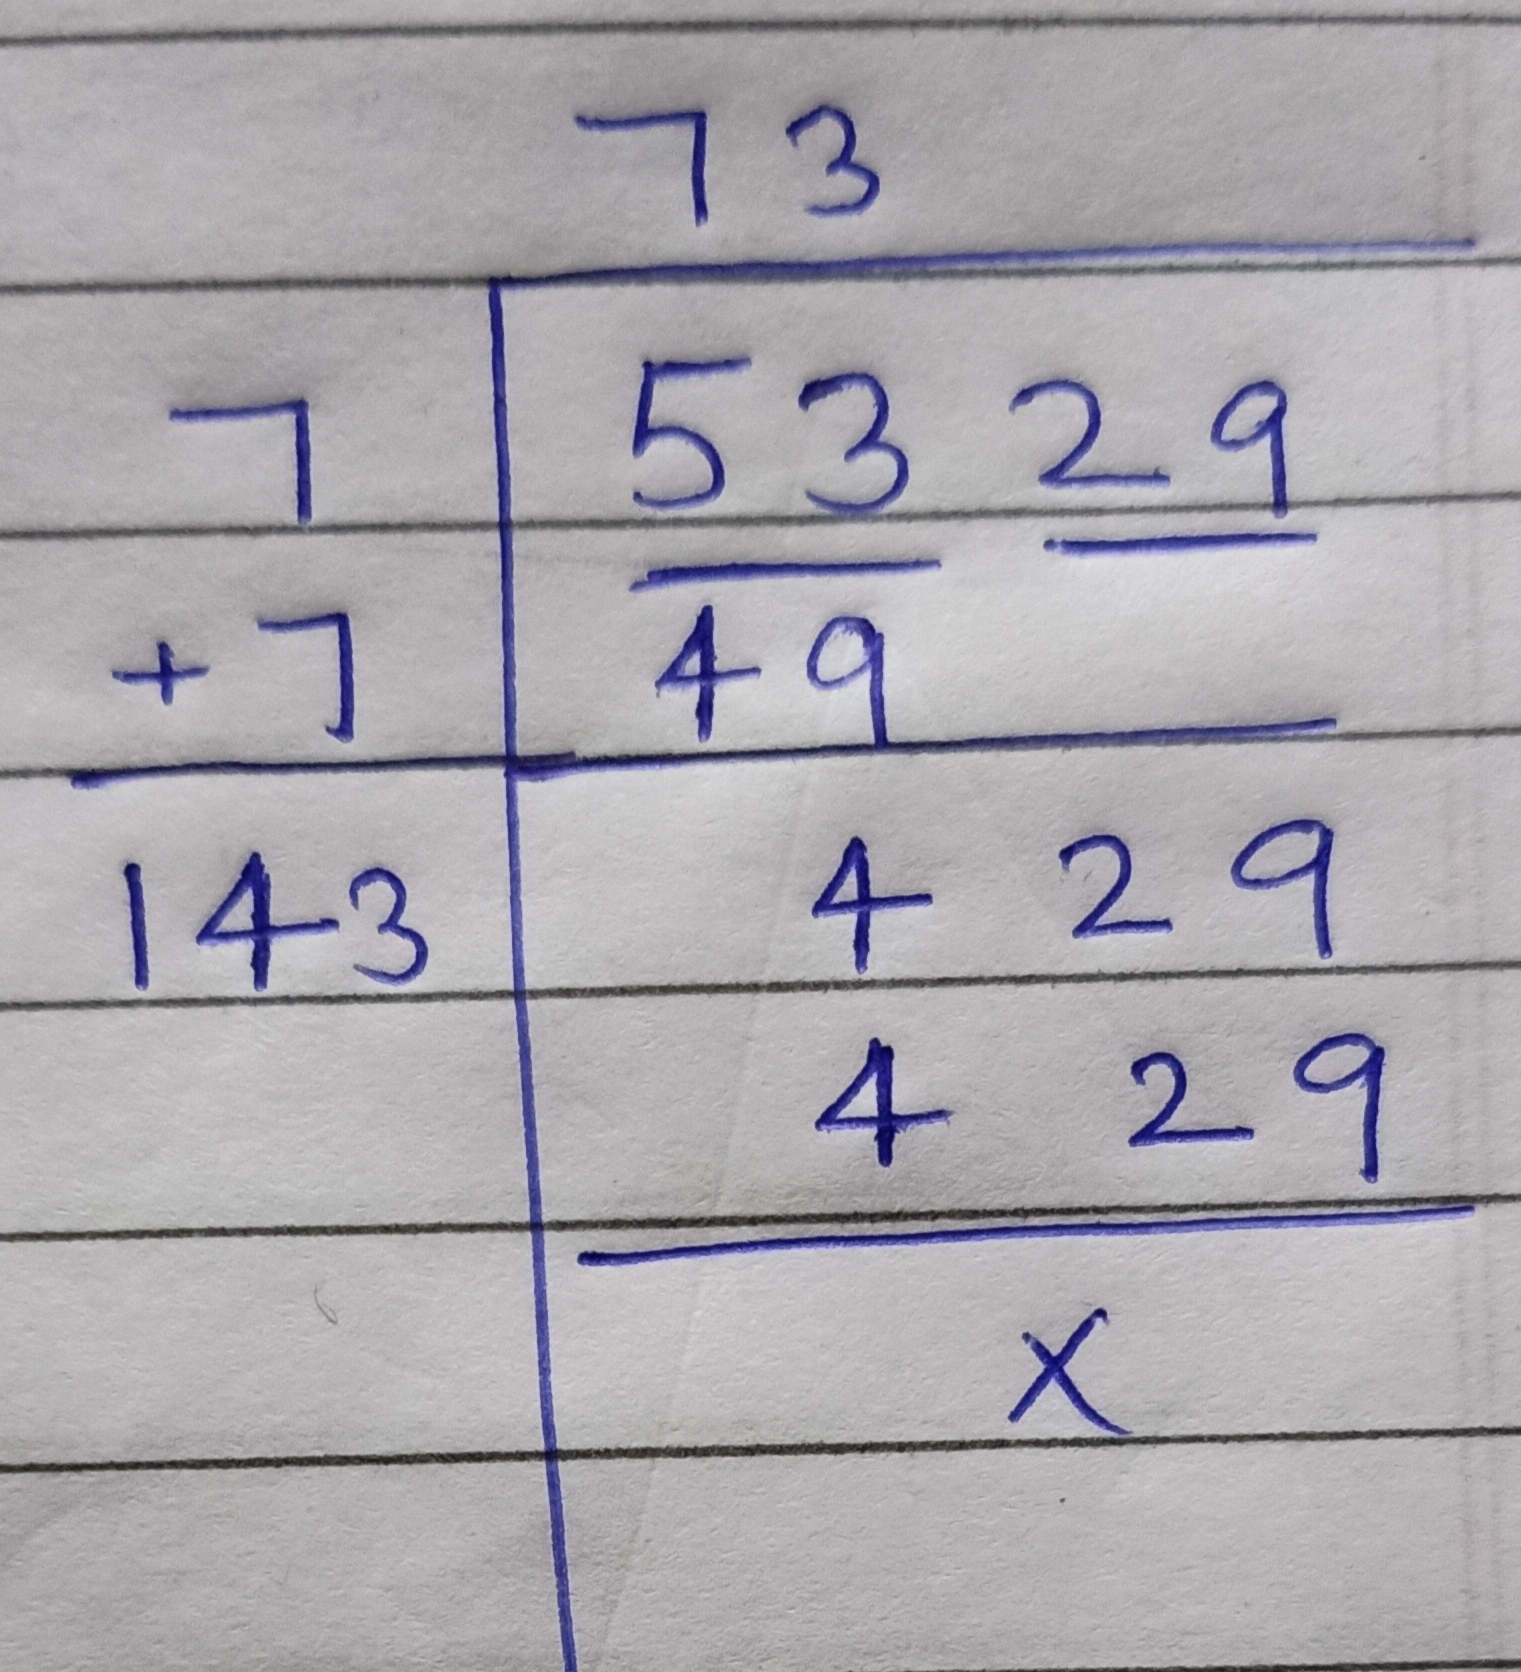 73
7 5329
+7 49
143 429
429
x